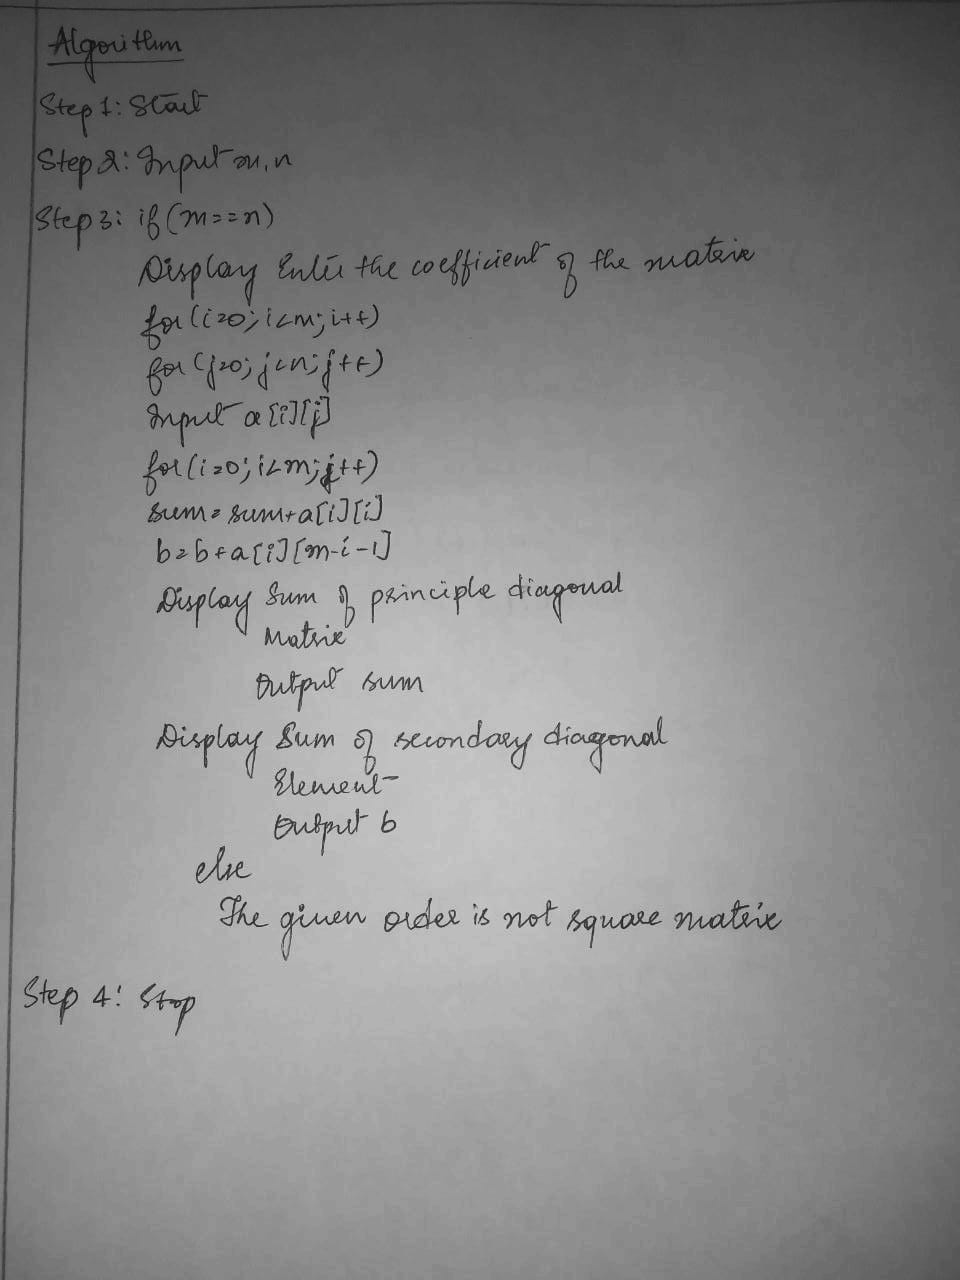 Algorithm
Step 1: Start
Step 2: Input m, n
Step 3: if (m==n)
Display Enter the coefficient of the matrix
for (i=0; i<m; i++)
for (j=0; j<n; j++)
Input a[i][j]
for (i=0; i<m; j++)
sum = sum+a[i][i]
b=b+a[i][m-i-1]
Display Sum of principle diagonal
Matrix
Output sum
Display Sum of secondary diagonal
Element
Output b
else
The given order is not square matrix
Step 4: Stop